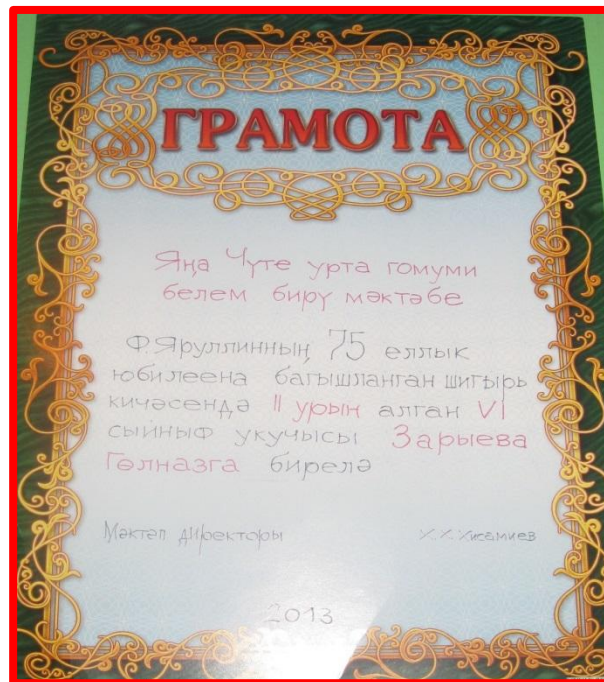 ГРАМОТА
Яңа Чүте урта гомуми
белем бирү мәктәбе
Ф.Яруллинның 75 еллык
юбилеена багышланган шигырь
кичәсендә II урын алган VI
сыйныф укучысы Зарыева
Гөлназга бирелә
Мәктәп директоры Х.Х.Хисамиев
2013